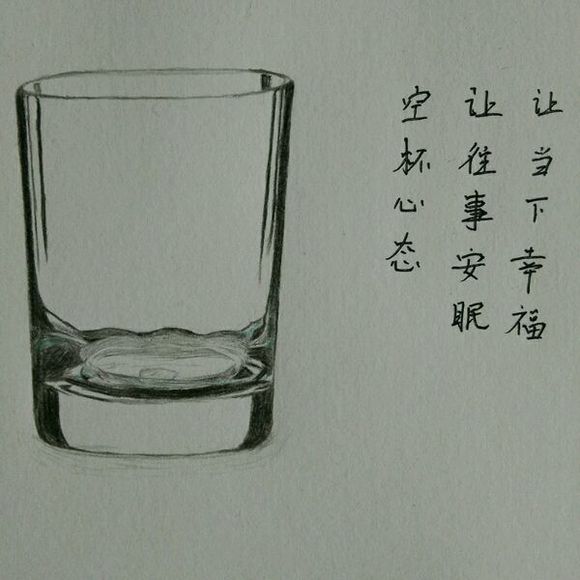 让当下幸福
让往事安眠
空杯心态